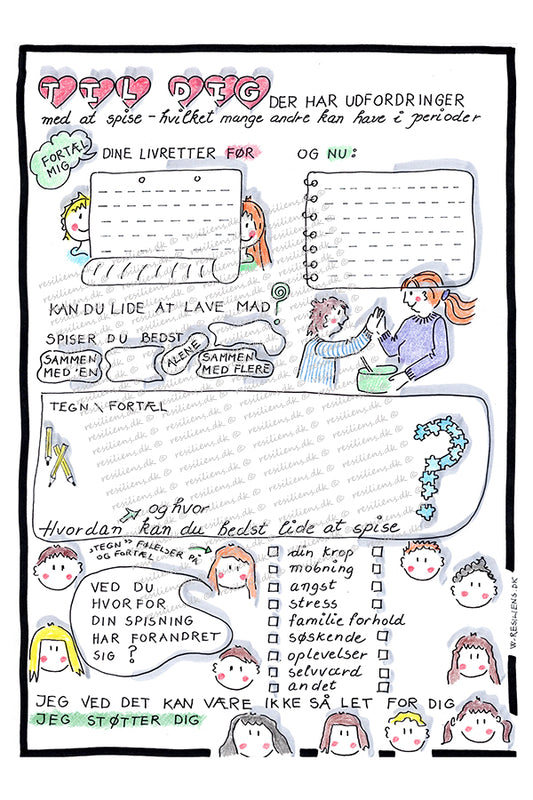 TIL DIG DER HAR UDFORDRINGER
med at spise - hvilket mange andre kan have i perioder
FORTÆL MIG
DINE LIVRETTER FØR OG NU:
KAN DU LIDE AT LAVE MAD?
SPISER DU BEDST
SAMMEN MED 'EN
ALENE
SAMMEN MED FLERE
TEGN \ FORTÆL
?
og hvor
Hvordan kan du bedst lide at spise
"TEGN" FØLELSER PÅ
OG FORTÆL
VED DU
HVORFOR
DIN SPISNING
HAR FORANDRET
SIG ?
din krop
mobning
angst
stress
familieforhold
søskende
oplevelser
selvværd
andet
JEG VED DET KAN VÆRE IKKE SÅ LET FOR DIG
JEG STØTTER DIG
W-RESILIENS.DK
resiliens.dk ©